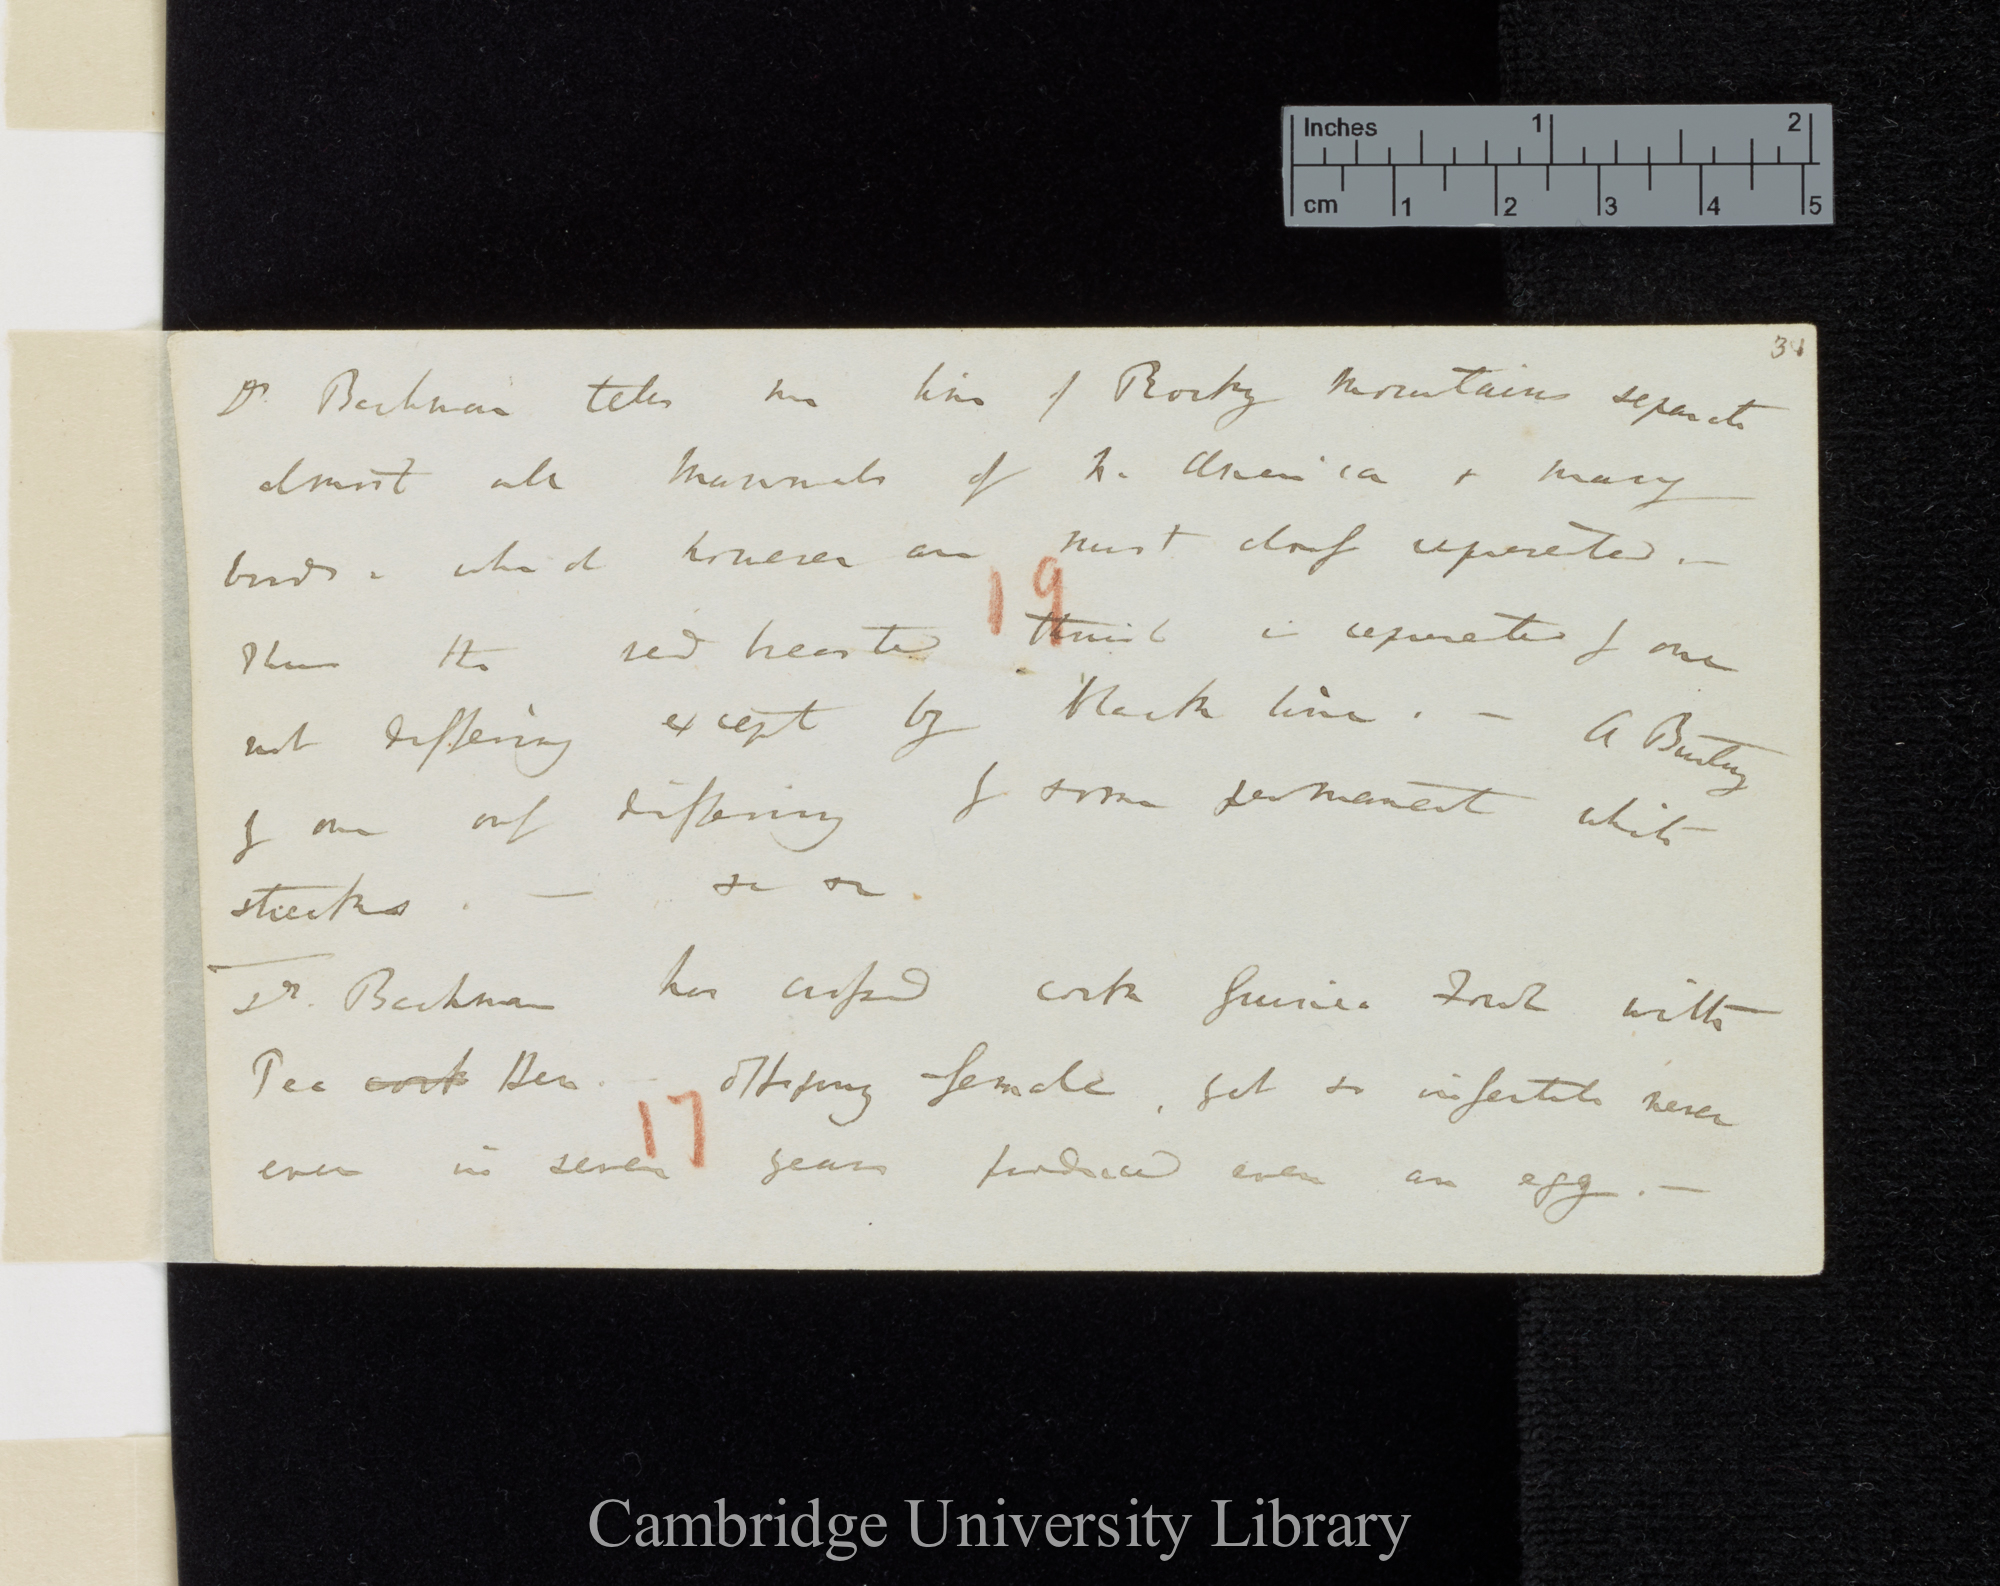 Inches 1 2
cm 1 2 3 4 5
31
Dr. Bachman tells me line of Rocky Mountains separate
almost all Mammals of N. America & many
birds, which however are most closely represented.—
Thus the red breasted thrush is represented by one
19
not differing except by black line.— A Bunting
by one only differing by some permanent white
streaks.— &c &c.
Dr. Bachman has crossed cock Guinea Fowl with
Pea cock Hen.— offspring female, yet so infertile never
17
even in seven years produced even an egg.—
Cambridge University Library